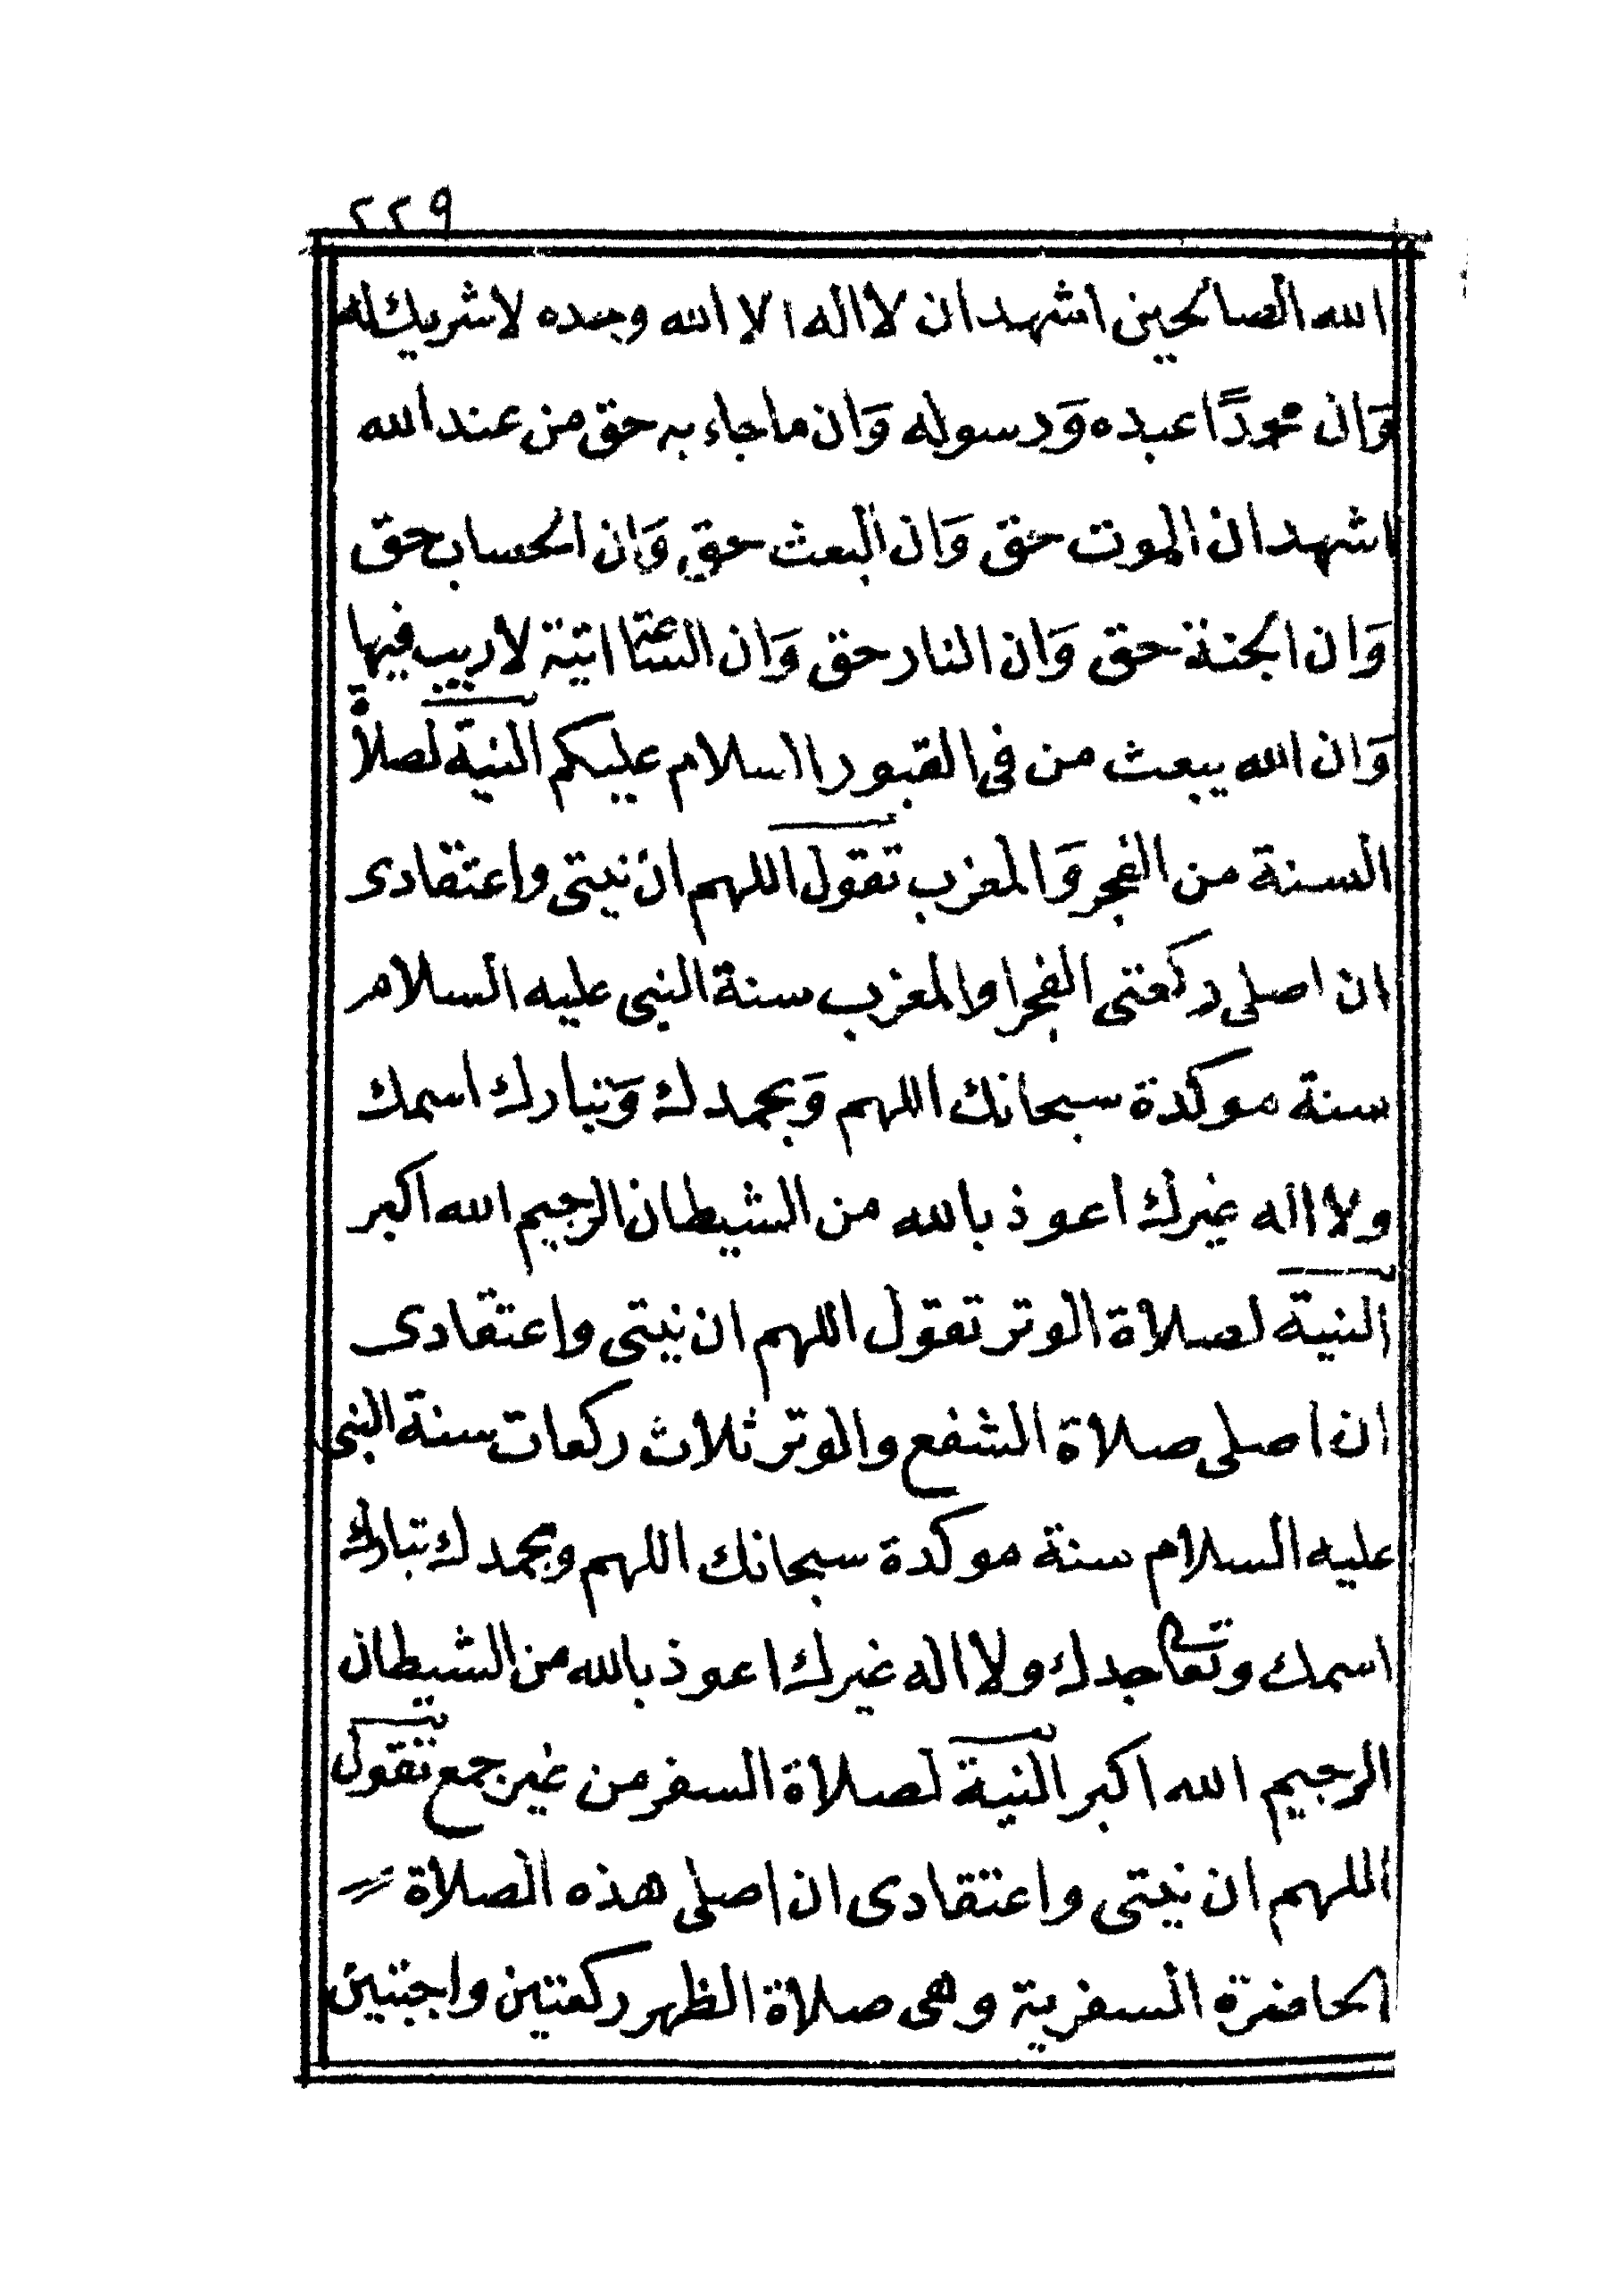 ٢٢٩
الله الصالحين اشهد ان لا اله الا الله وحده لا شريك له
وَان محمدًا عبده وَرسوله وَان ما جاء به حق من عند الله
اشهد ان الموت حق وَان البعث حق وَان الحساب حق
وَان الجنة حق وَان النار حق وَان الساعة اتية لا ريب فيها
وَان الله يبعث من فى القبور السلام عليكم النية لصلاة
السنة من الفجر وَالمغرب تقول اللهم ان نيتى واعتقادى
ان اصلى ركعتى الفجر او المغرب سنة النبى عليه السلام
سنة موكدة سبحانك اللهم وَبحمدك وَتبارك اسمك
ولا اله غيرك اعوذ بالله من الشيطان الرجيم الله اكبر
النية لصلاة الوتر تقول اللهم ان نيتى واعتقادى
ان اصلى صلاة الشفع والوتر ثلاث ركعات سنة النبى
عليه السلام سنة موكدة سبحانك اللهم وبحمدك تبارك
اسمك وتعالى جدك ولا اله غيرك اعوذ بالله من الشيطان
الرجيم الله اكبر النية لصلاة السفر من غير جمع تقول
اللهم ان نيتى واعتقادى ان اصلى هذه الصلاة
الحاضرة السفرية وهى صلاة الظهر ركعتين واجبتين